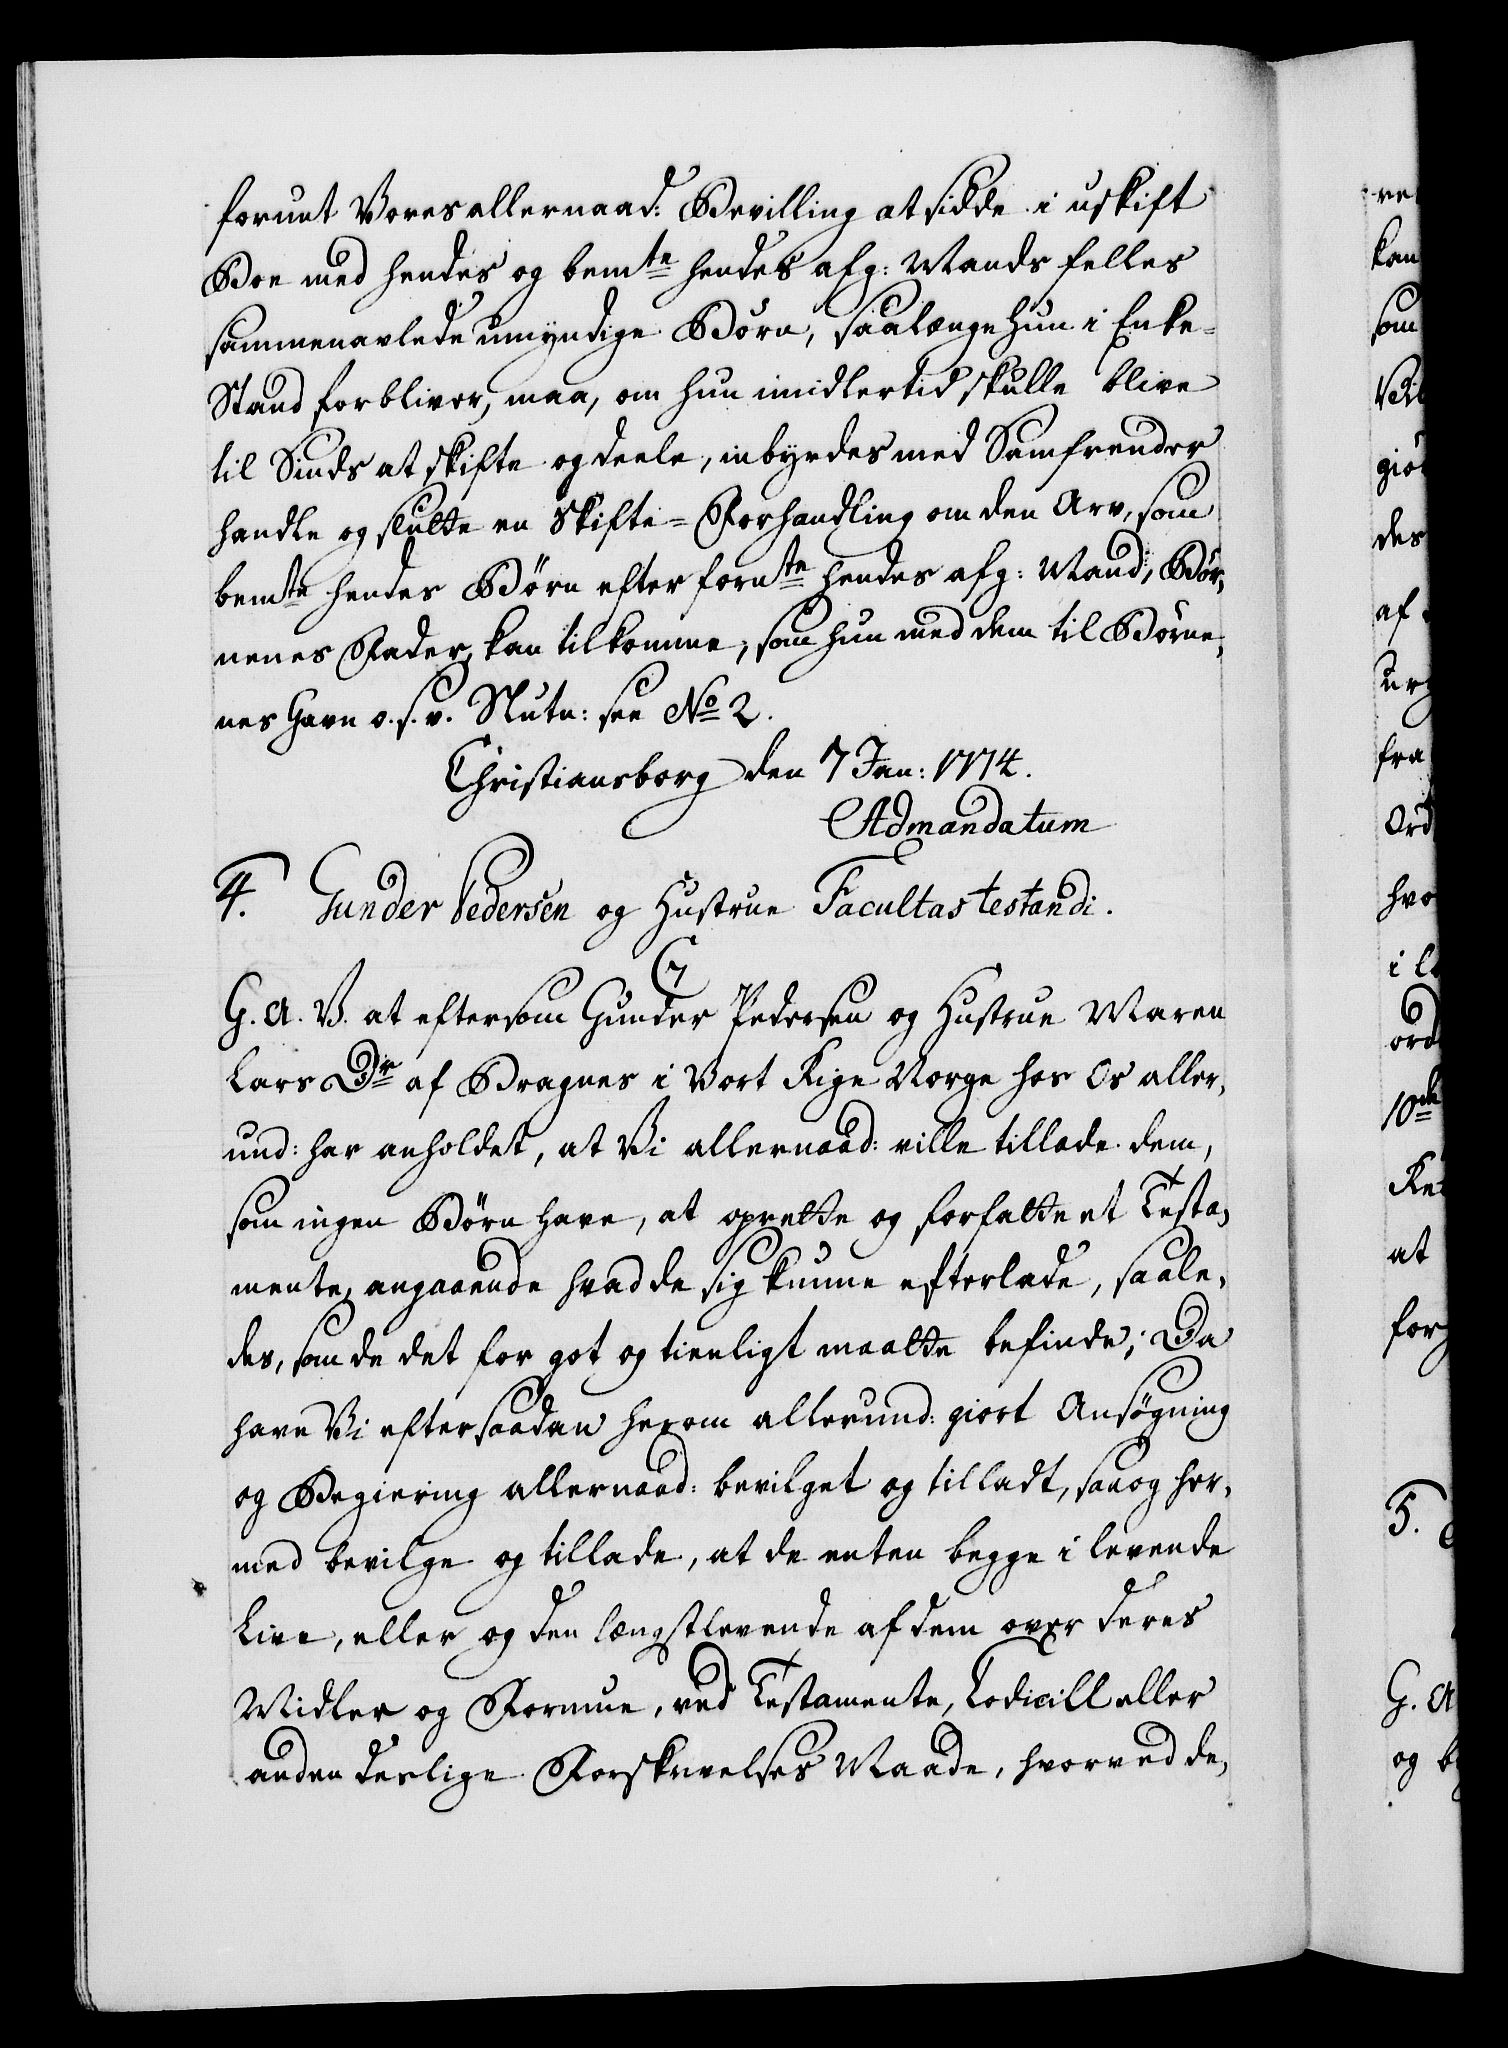 forunt Vores allernaad: Bevilling at sidde i uskift
Boe med hendes og bemte hendes afg: Mands felles
sammenavlede umyndige Børn, saalænge hun i Enke=
Stand forbliver, maa, om hun imidlertid skulle blive
til Sinds at skifte og deele, inbyrdes med Samfrender
handle og slutte en Skifte=Forhandling om den Arv, som
bemte hendes Børn efter fornte hendes afg: Mand, Bør,
nenes Fader, kan tilkomme, som hun med dem til Børne,
nes Gavn o. s. v. Slutn: see No 2.
Christiansborg den 7 Jan: 1774.
Admandatum
4. Gunder Pedersen og Hustrue Facultas testandi.
C7
G. A. V. at eftersom Gunder Pedersen og Hustrue Maren
Lars Dr af Bragnes i Vort Rige Norge hos Os aller,
und: har anholdet, at Vi allernaad: ville tillade dem,
som ingen Børn have, at oprette og forfatte et Testa,
mente, angaaende hvad de sig kunne efterlade, saale,
des, som de det for got og tienligt maatte befinde; Da
have Vi efter saadan herom allerund: giort Ansøgning
og Begiering allernaad: bevilget og tilladt, saa og her,
med bevilge og tillade, at de enten begge i levende
Live, eller og den længstlevende af dem over deres
Midler og Formue, ved Testamente, Codicill eller
anden deslige Forskrivelses Maade, hvorved de,